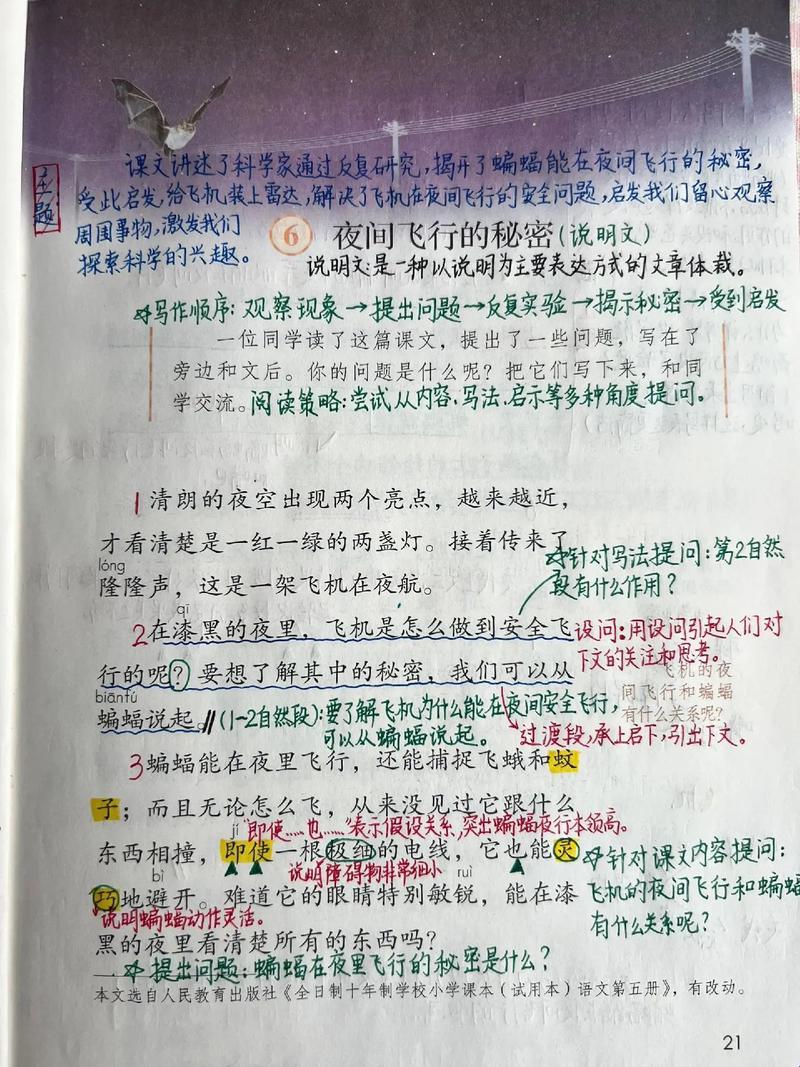 主题
课文讲述了科学家通过反复研究，揭开了蝙蝠能在夜间飞行的秘密，
受此启发，给飞机装上雷达，解决了飞机在夜间飞行的安全问题，启发我们留心观察
周围事物，激发我们
探索科学的兴趣。
6 夜间飞行的秘密(说明文)
说明文：是一种以说明为主要表达方式的文章体裁。
写作顺序：观察现象→提出问题→反复实验→揭示秘密→受到启发
一位同学读了这篇课文，提出了一些问题，写在了
旁边和文后。你的问题是什么呢？把它们写下来，和同
学交流。
阅读策略：尝试从内容、写法、启示等多种角度提问。
1 清朗的夜空出现两个亮点，越来越近，
才看清楚是一红一绿的两盏灯。接着传来了
lóng
隆隆声，这是一架飞机在夜航。
针对写法提问：第2自然
段有什么作用？
qī
2 在漆黑的夜里，飞机是怎么做到安全飞
行的呢？要想了解其中的秘密，我们可以从
biānfú
蝙蝠说起。
设问：用设问引起人们对
下文的关注和思考。
飞机的夜
间飞行和蝙蝠
有什么关系呢？
(1-2自然段)：要了解飞机为什么能在夜间安全飞行，
可以从蝙蝠说起。
过渡段，承上启下，引出下文。
3 蝙蝠能在夜里飞行，还能捕捉飞蛾和蚊
子；而且无论怎么飞，从来没见过它跟什么
“即使……也……”表示假设关系，突出蝙蝠夜行本领高。
jí
东西相撞，即使一根极细的电线，它也能灵
说明障碍物非常细小
bì ruì
巧地避开。难道它的眼睛特别敏锐，能在漆
说明蝙蝠动作灵活。
黑的夜里看清楚所有的东西吗？
针对课文内容提问：
飞机的夜间飞行和蝙蝠
有什么关系呢？
提出问题：蝙蝠在夜里飞行的秘密是什么？
本文选自人民教育出版社《全日制十年制学校小学课本（试用本）语文第五册》，有改动。
21